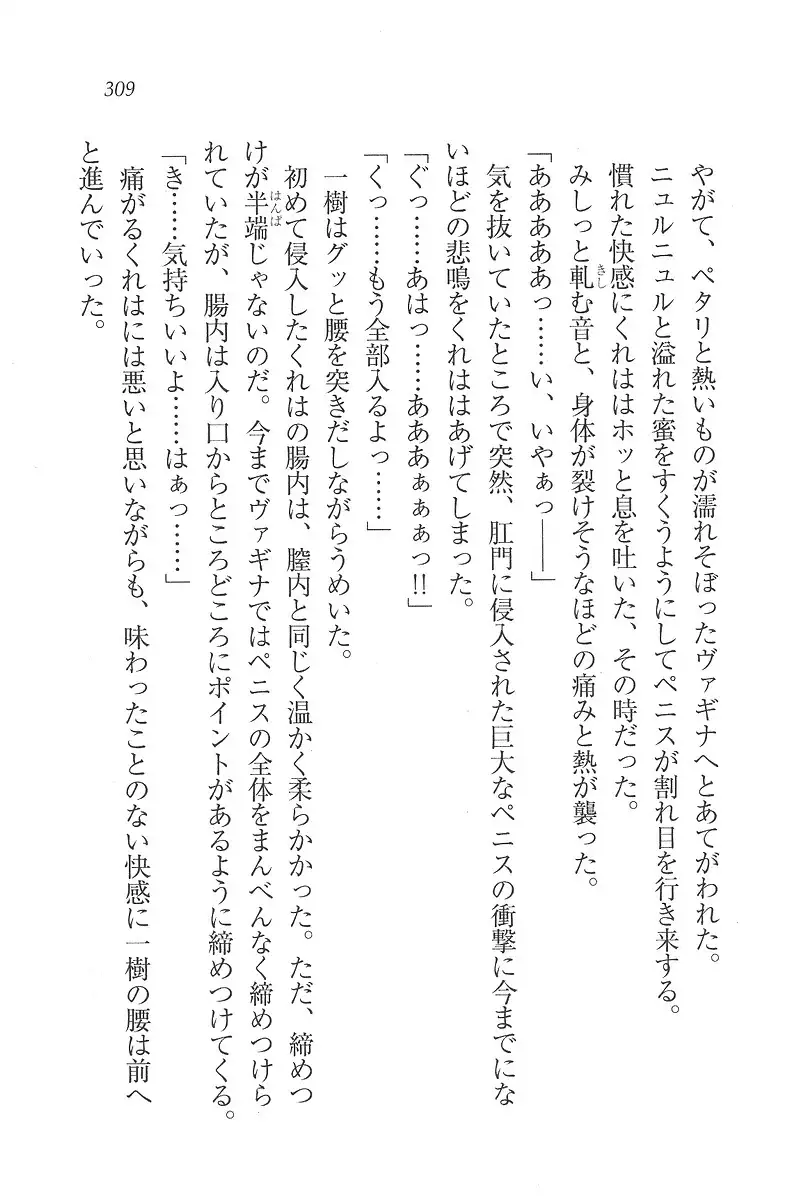 309
やがて、ペタリと熱いものが濡れそぼったヴァギナへとあてがわれた。
ニュルニュルと溢れた蜜をすくうようにしてペニスが割れ目を行き来する。
慣れた快感にくれははホッと息を吐いた、その時だった。
みしっと軋む音と、身体が裂けそうなほどの痛みと熱が襲った。
「あああああっ……い、いやぁっ――」
気を抜いていたところで突然、肛門に侵入された巨大なペニスの衝撃に今までにな
いほどの悲鳴をくれははあげてしまった。
「ぐっ……あはっ……あああぁぁぁっ!!」
「くっ……もう全部入るよっ……」
一樹はグッと腰を突きだしながらうめいた。
初めて侵入したくれはの腸内は、膣内と同じく温かく柔らかかった。ただ、締めつ
けが半端じゃないのだ。今までヴァギナではペニスの全体をまんべんなく締めつけら
れていたが、腸内は入り口からところどころにポイントがあるように締めつけてくる。
「き……気持ちいいよ……はぁっ……」
痛がるくれはには悪いと思いながらも、味わったことのない快感に一樹の腰は前へ
と進んでいった。